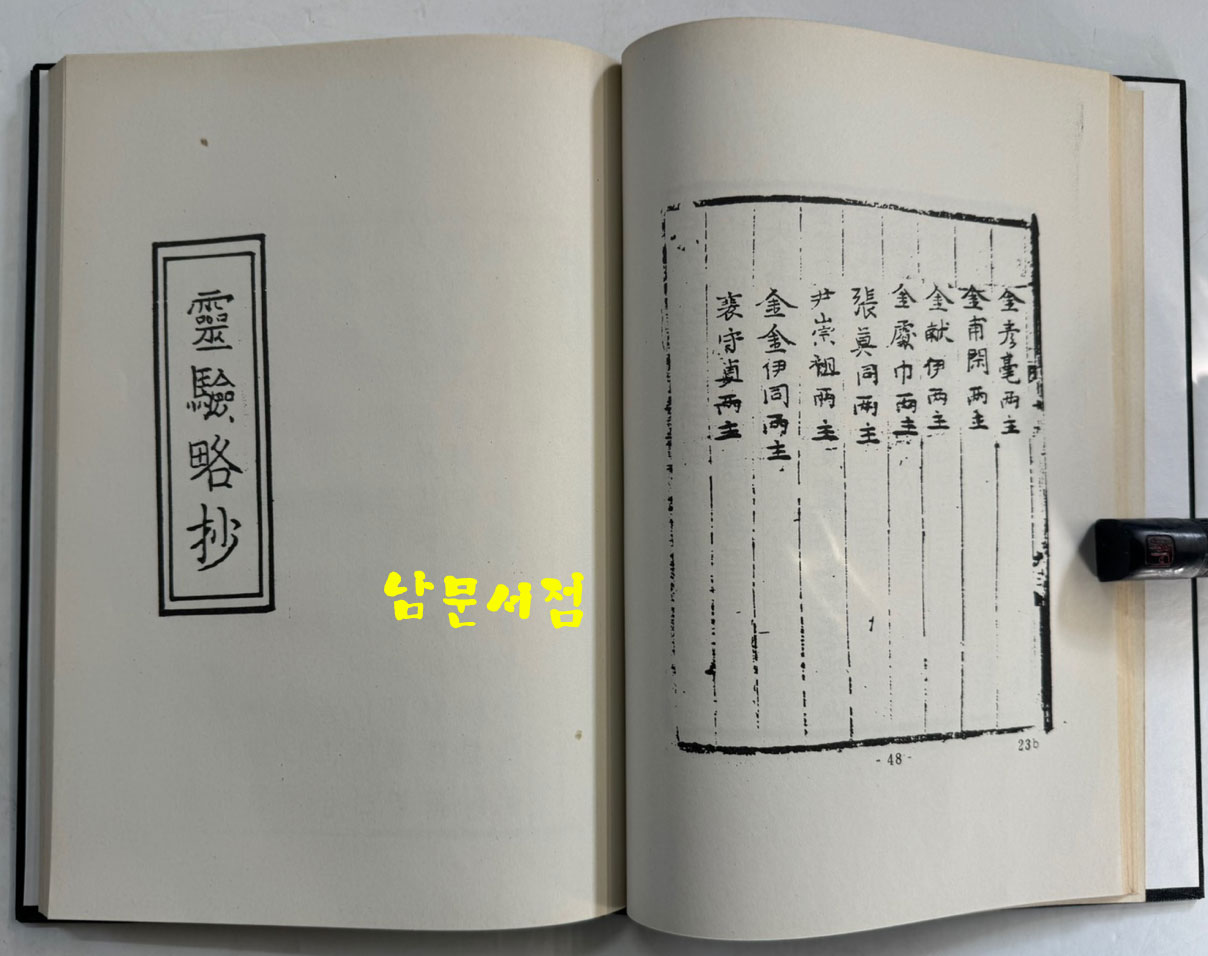 金彦毫兩主
金甫閑兩主
金献伊兩主
金處巾兩主
張眞同兩主
尹崇祖兩主
金金伊同兩主
裵守貞兩主
- 48 -
23b
靈驗略抄
남문서점